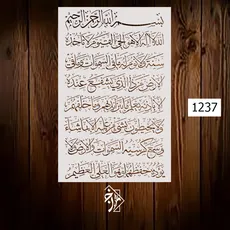 بسم الله الرحمن الرحيم
الله لا اله الا هو الحي القيوم لا تاخذه
سنة ولا نوم له ما في السموات وما في
الارض من ذا الذي يشفع عنده
الا باذنه يعلم ما بين ايديهم وما خلفهم
ولا يحيطون بشيء من علمه الا بما شاء
وسع كرسيه السموات والارض ولا
يؤده حفظهما وهو العلي العظيم
1237